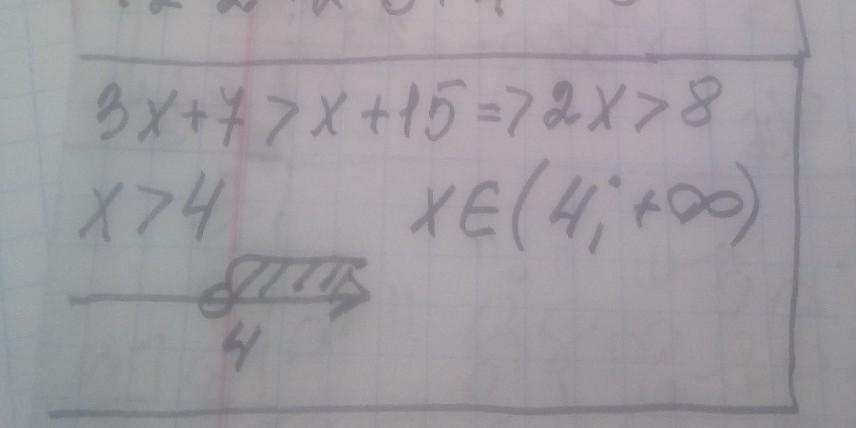 3x+7>x+15=>2x>8
x>4 x∈(4;+∞)
4